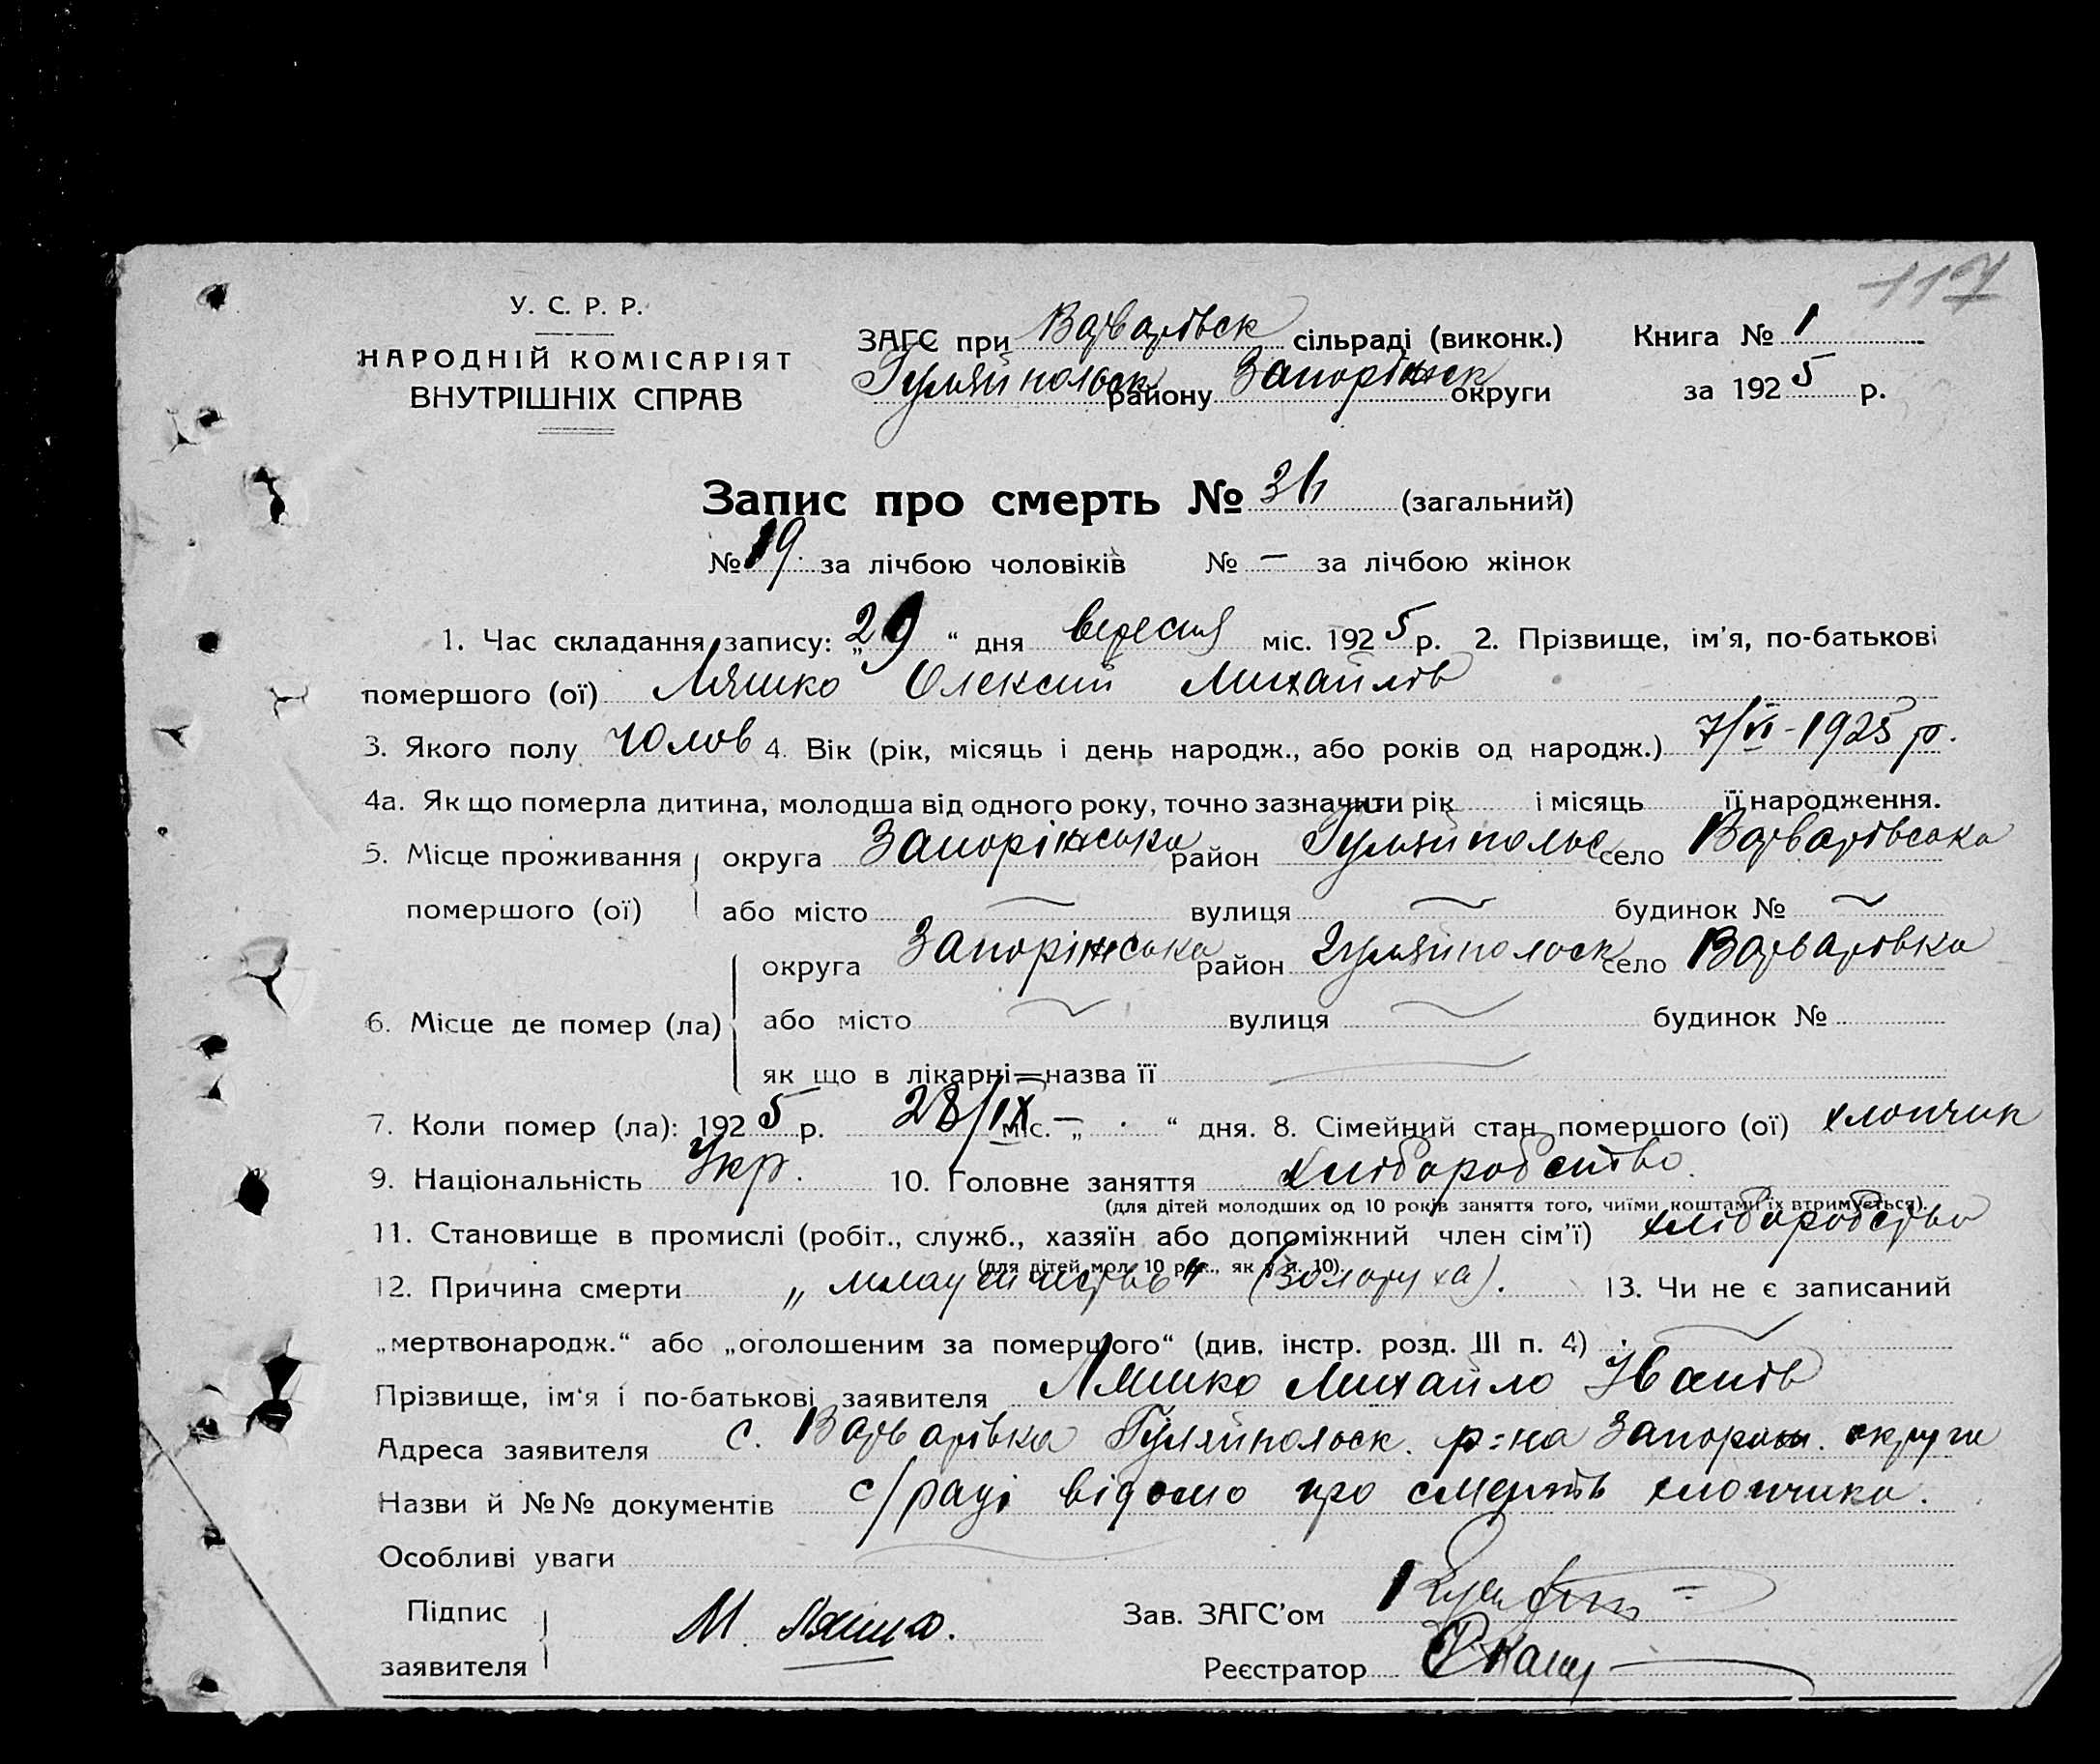 117
У. С. Р. Р.
НАРОДНІЙ КОМІСАРІЯТ
ВНУТРІШНІХ СПРАВ
ЗАГС при Варварівск сільраді (виконк.)
Гуляйпольск району Запоріжск округи
Книга № 1
за 1925 р.
Запис про смерть № (загальний)
№ 19 за лічбою чоловіків № — за лічбою жінок
1. Час складання запису: „29“ дня вересня міс. 1925 р. 2. Прізвище, ім'я, по-батькові
помершого (ої) Ляшко Олексий Михайлів
3. Якого полу чолов 4. Вік (рік, місяць і день народж., або років од народж.) 7/VI-1925 р.
4а. Як що померла дитина, молодша від одного року, точно зазначити рік і місяць її народження.
5. Місце проживання помершого (ої) округа Запоріжська район Гуляйпольс село Варварівська
або місто — вулиця — будинок № —
6. Місце де помер (ла) округа Запоріжська район Гуляйпольск село Варварівка
або місто — вулиця — будинок №
як що в лікарні—назва її —
7. Коли помер (ла): 1925 р. 28/IX міс. — „ “ дня. 8. Сімейний стан помершого (ої) хлопчик
9. Національність Укр. 10. Головне заняття хліборобство.
(для дітей молодших од 10 років заняття того, чиїми коштами їх втримується).
11. Становище в промислі (робіт., служб., хазяїн або допоміжний член сім'ї) хліборобство
(для дітей мол. 10 рок., як у п. 10).
12. Причина смерти (Золотуха). 13. Чи не є записаний
„мертвонародж.“ або „оголошеним за помершого“ (див. інстр. розд. III п. 4) —
Прізвище, ім'я і по-батькові заявителя Ляшко Михайло Іванів
Адреса заявителя с. Варварівка Гуляйпольск. р-на Запорож. округи
Назви й №№ документів с/раді відомо про смерть хлопчика.
Особливі уваги —
Підпис заявителя М. Ляшко.
Зав. ЗАГС'ом
Реєстратор